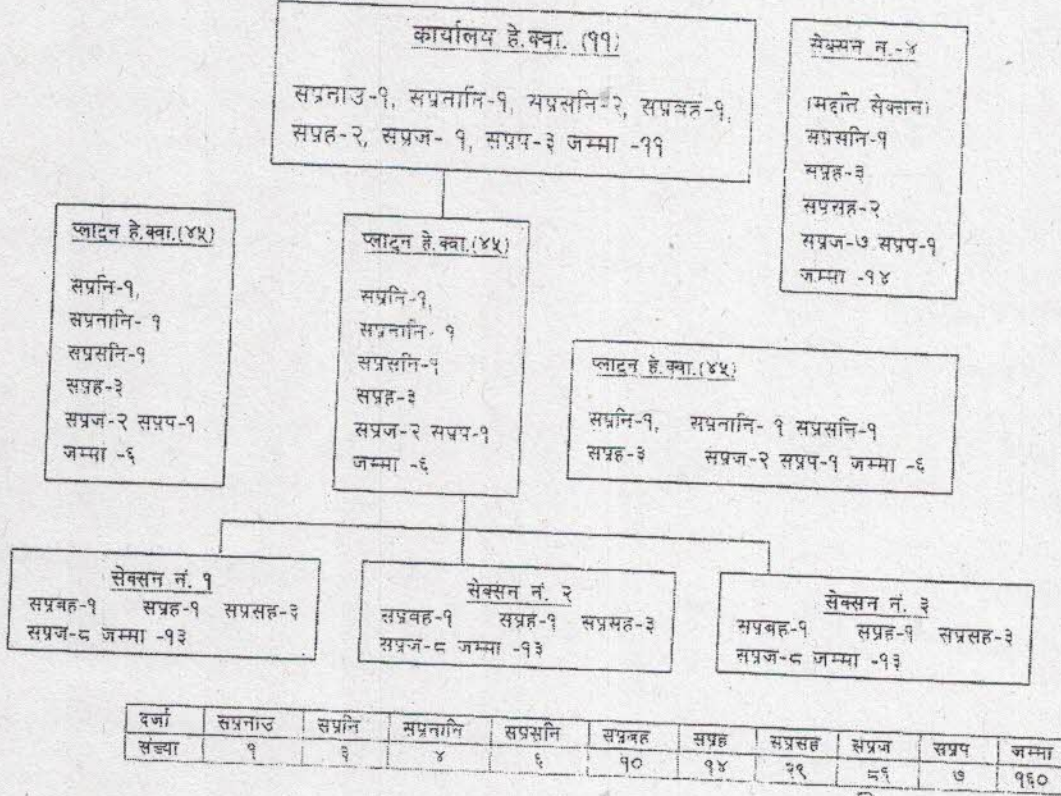 कार्यालय हे.क्वा. (११)
सप्रनाउ-१, सप्रनानि-१, सप्रसनि-२, सप्रबह-१,
सप्रह-२, सप्रज- १, सप्रप-३ जम्मा -११
सेक्सन न.-४
(मद्दति सेक्सन)
सप्रसनि-१
सप्रह-३
सप्रसह-२
सप्रज-७ सप्रप-१
जम्मा -१४
प्लाटुन हे.क्वा.(४५)
सप्रनि-१,
सप्रनानि- १
सप्रसनि-१
सप्रह-३
सप्रज-२ सप्रप-१
जम्मा -६
प्लाटुन हे.क्वा.(४५)
सप्रनि-१,
सप्रनानि- १
सप्रसनि-१
सप्रह-३
सप्रज-२ सप्रप-१
जम्मा -६
प्लाटुन हे.क्वा.(४५)
सप्रनि-१, सप्रनानि- १ सप्रसनि-१
सप्रह-३ सप्रज-२ सप्रप-१ जम्मा -६
सेक्सन नं. १
सप्रबह-१ सप्रह-१ सप्रसह-३
सप्रज-८ जम्मा -१३
सेक्सन नं. २
सप्रबह-१ सप्रह-१ सप्रसह-३
सप्रज-८ जम्मा -१३
सेक्सन नं. ३
सप्रबह-१ सप्रह-१ सप्रसह-३
सप्रज-८ जम्मा -१३
दर्जा सप्रनाउ सप्रनि सप्रनानि सप्रसनि सप्रबह सप्रह सप्रसह सप्रज सप्रप जम्मा
संख्या १ ३ ४ ६ १० १४ २९ ८६ ७ १६०